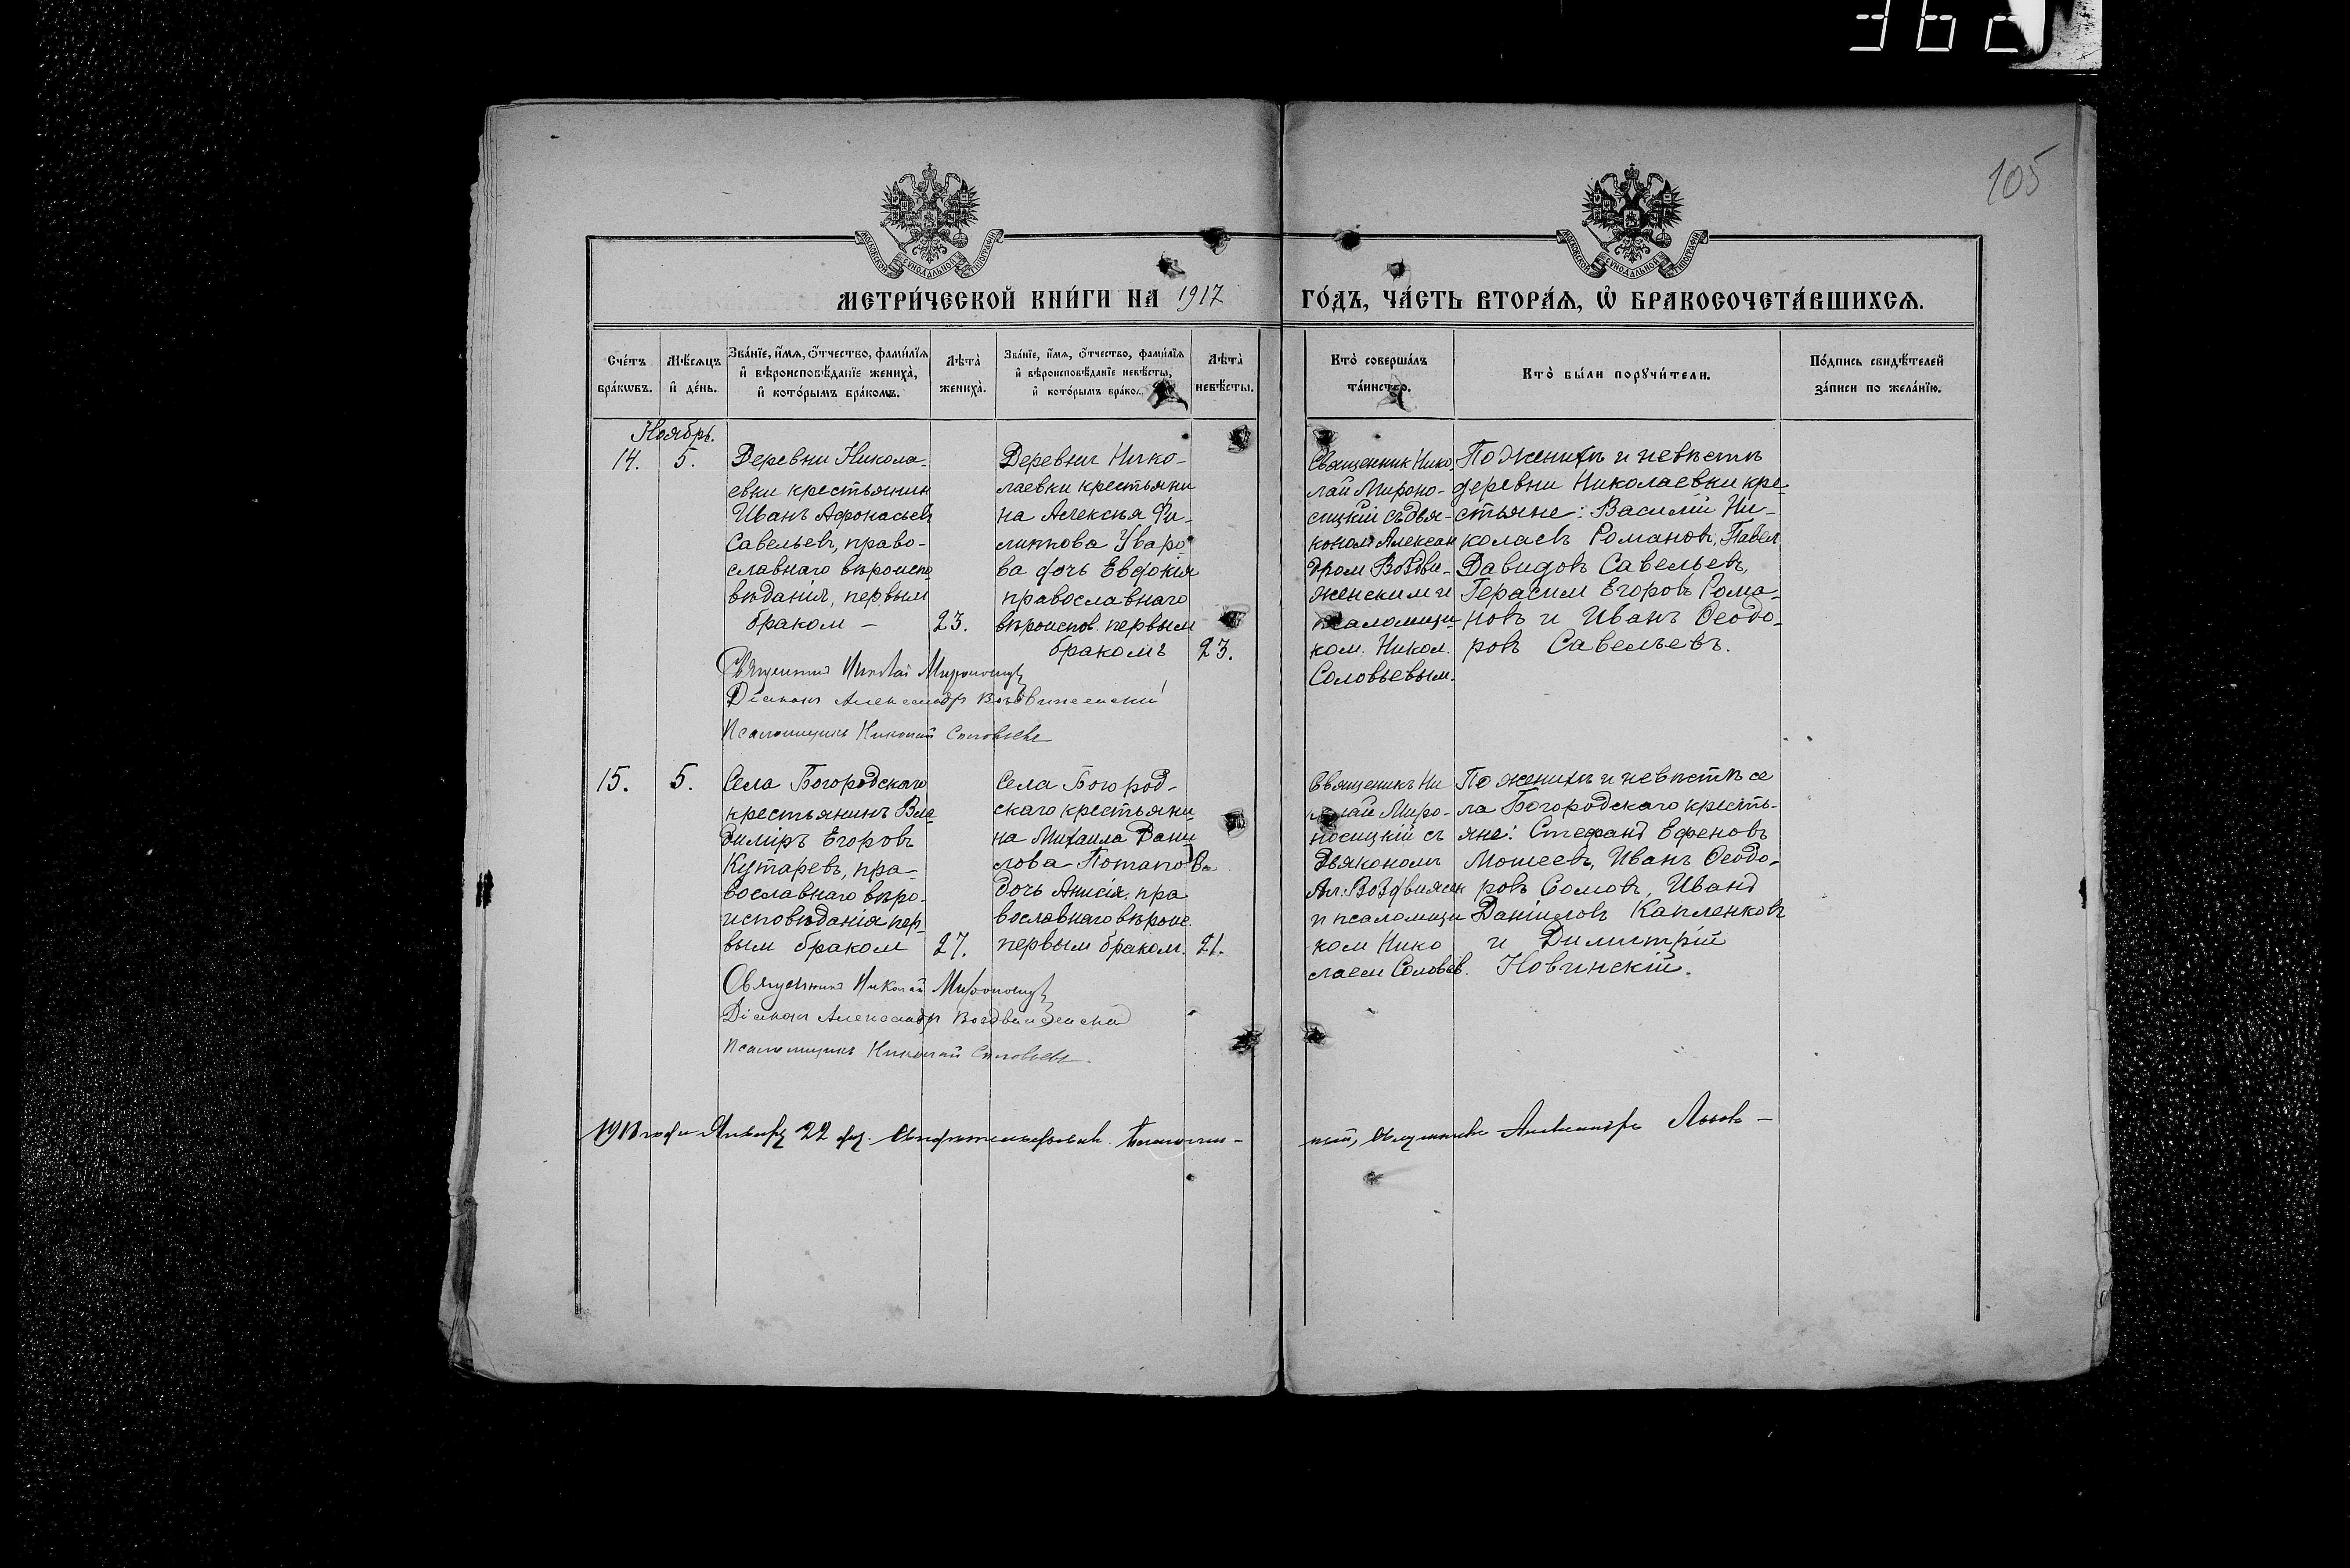 105
МОСКОВСКОЙ СУНОДАЛЬНОЙ ТИПОГРАФІИ
МОСКОВСКОЙ СУНОДАЛЬНОЙ ТИПОГРАФІИ
МЕТРИ́ЧЕСКОЙ КНИ́ГИ НА 1917
ГО́ДЪ, ЧА́СТЬ ВТОРА́Ѧ, Ѽ БРАКОСОЧЕТА́ВШИХСѦ.
Сче́тъ
бра́кѡвъ.
Мѣ́сяцъ
и҆ де́нь.
Зва́нїе, и҆́мѧ, ѻ҆́тчество, фами́лїѧ
и҆ вѣроисповѣ́данїе жениха̀,
и҆ кото́рымъ бра́комъ.
Лѣта̀
жениха̀.
Зва́нїе, и҆́мѧ, ѻ҆́тчество, фами́лїѧ
и҆ вѣроисповѣ́данїе невѣ́сты,
и҆ кото́рымъ бра́ко
Лѣта̀
невѣ́сты.
Кто̀ соверша́лъ
та́инство.
Кто̀ бы́ли порꙋчи́тели.
По́дпись свидѣ́телей
за́писи по жела́нїю.
Ноябрь.
14.
5.
Деревни Никола-
евки крестьянин
Иванъ Афонасьевъ
Савельевъ, право-
славнаго вѣроиспо
вѣданія, первым
браком –
23.
Деревни Нико-
лаевки крестьяни
на Алексѣя Фи-
липпова Уваро
ва дочь Евдокія
православнаго
вѣроиспов. первым
бракомъ
23.
Священник Нико
лай Мироно-
сицкій съ дья-
коном Алексан
дром Воздви-
женским и
псаломщи
ком. Никол.
Соловьевым.
По женихѣ и невѣстѣ
деревни Николаевки кре-
стьяне: Василій Ни-
колаевъ Романовъ, Павел
Давидовъ Савельевъ,
Герасим Егоровъ Рома-
новъ и Иванъ Ѳеодо-
ровъ Савельевъ.
Священникъ Николай Мироносицк
Діаконъ Александръ Воздвиженскій
Псаломщикъ Николай Соловьевъ
15.
5.
Села Богородскаго
крестьянинъ Вла
диміръ Егоровъ
Кутаревъ, пра-
вославнаго вѣро-
исповѣданія пер-
вым браком
27.
Села Богород-
скаго крестьяни
на Михаила Дани
лова Потапова
дочь Анисія. пра
вославнаго вѣроис.
первым браком.
21.
Священикъ Ни
колай Миро-
носицкій съ
Дьякономъ
Ал. Воздвижен
и псаломщи
ком Нико
лаем Соловьев.
По женихѣ и невѣстѣ се
ла Богородскаго кресть-
яне: Стефанъ Ефеновъ
Мошеевъ, Иванъ Ѳеодо-
ровъ Сомовъ, Иванъ
Даніиловъ Капленковъ
и Димитрій
Новинскій.
Священникъ Николай Мироносицк
Діаконъ Александръ Воздвиженскій
Псаломщикъ Николай Соловьевъ.
1918 года Января 22 дн.
Священникъ Александръ